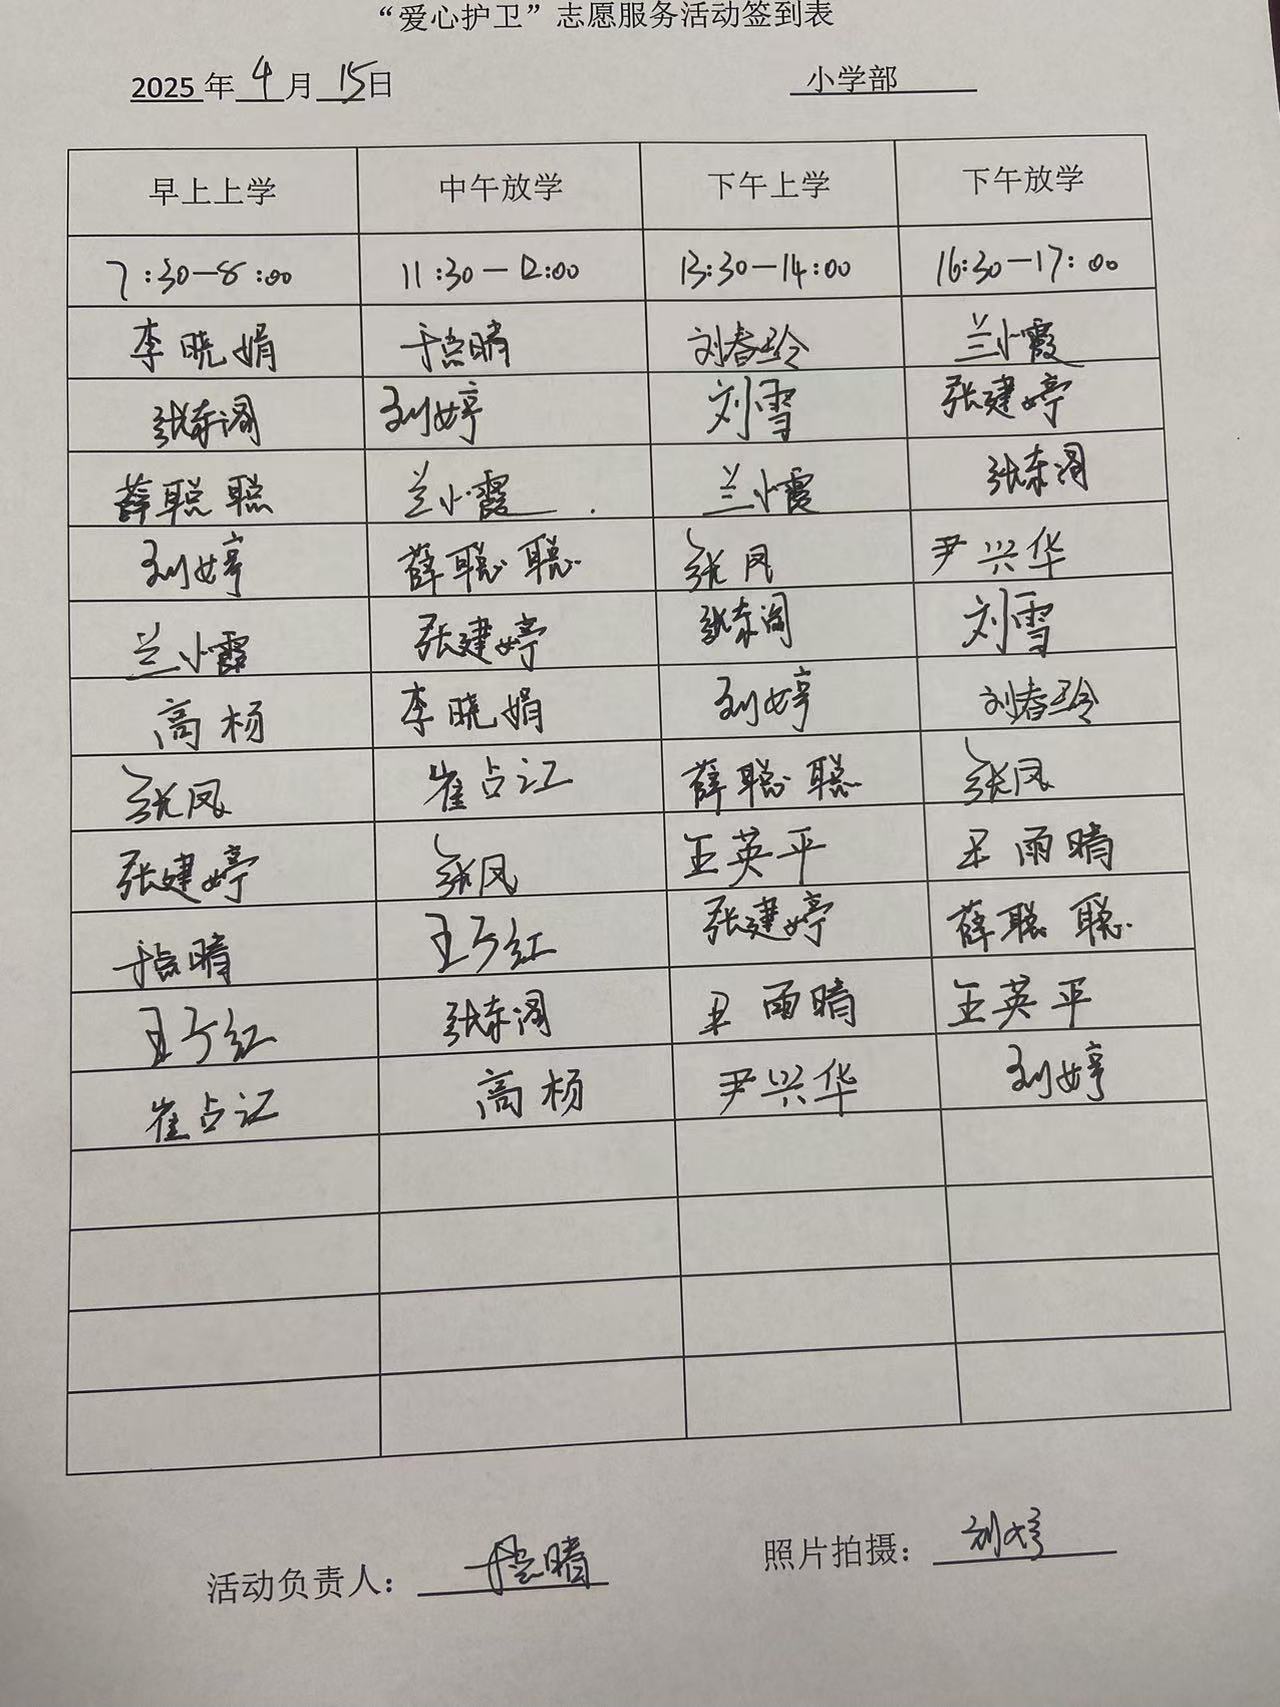 “爱心护卫”志愿服务活动签到表
2025 年 4 月 15 日 小学部
早上上学 中午放学 下午上学 下午放学
7:30-8:00 11:30-12:00 13:30-14:00 16:30-17:00
李晓娟 刘春玲 兰小霞
刘婷 刘雪 张建婷
薛聪聪 兰小霞 兰小霞
刘婷 薛聪聪 张凤 尹兴华
兰小霞 张建婷 刘雪
高杨 李晓娟 刘婷 刘春玲
张凤 崔占江 薛聪聪 张凤
张建婷 张凤 王英平 雨晴
晴 王红 张建婷 薛聪聪
王红 雨晴 王英平
崔占江 高杨 尹兴华 刘婷
活动负责人: 晴 照片拍摄: 刘婷